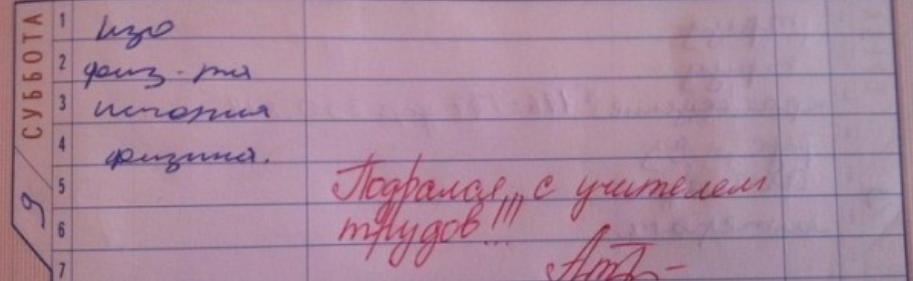 СУББОТА
9
1 Изо
2 физ-ра
3 история
4 физика.
5 Подрался с учителем
6 трудов!!!
7